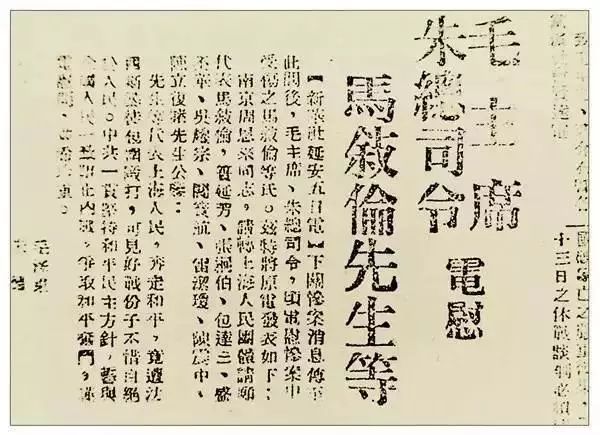 十三日之休戰談判必須
毛主席
朱總司令 電慰
馬敍倫先生等
【新華社延安五日電】下關慘案消息傳至
此間後,毛主席、朱總司令,頃電慰慘案中
受傷之馬敍倫等氏。茲特將原電發表如下:
南京周恩來同志,請轉上海人民團體請願
代表馬敍倫,簣延芳、張絅伯、包達三、盛
丕華、吳耀宗、閻寶航、雷潔瓊、陳震中、
陳立復諸先生公鑒:
先生等代表上海人民,奔走和平,竟遭法
西斯暴徒包圍毆打,可見好戰份子不惜自絕
於人民。中共一貫堅持和平民主方針,誓與
全國人民一致阻止內戰,爭取和平奮鬥,謹
電慰問,並希珍重。
毛澤東